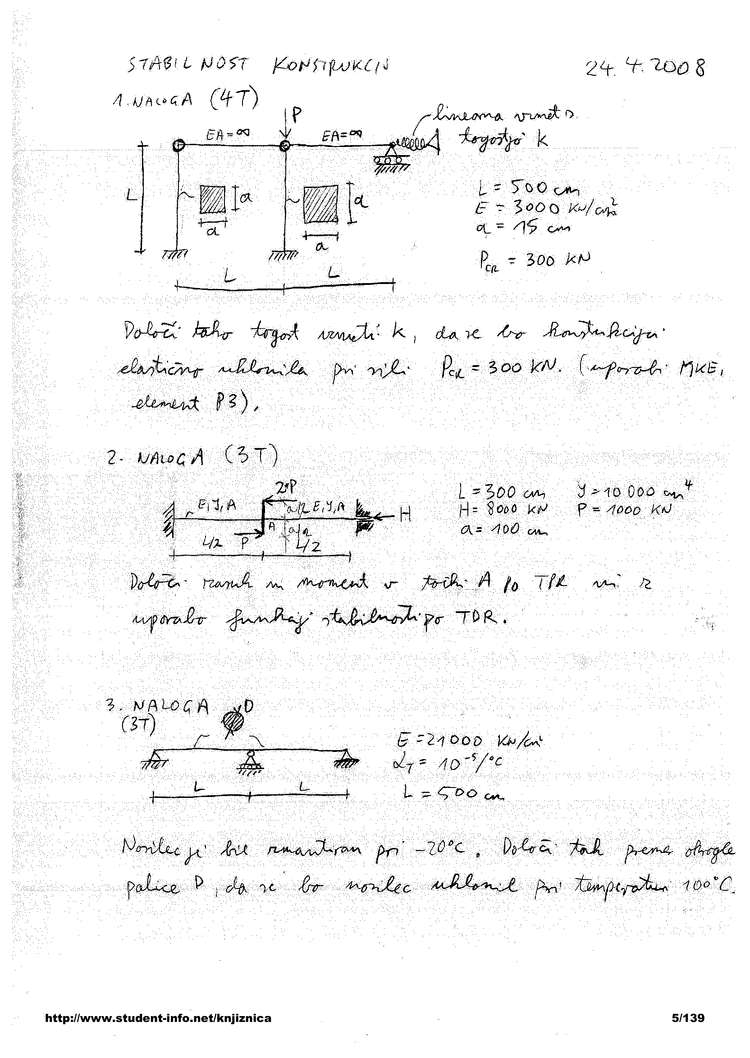 STABILNOST KONSTRUKCIJ 24.4.2008
1. NALOGA (4T)
P
linearna vzmet s
togostjo k
EA=∞ EA=∞
L
a
a
a
a
L L
L = 500 cm
E = 3000 KN/cm²
a = 15 cm
P_CR = 300 KN
Določi tako togost vzmeti k, da se bo konstrukcija
elastično uklonila pri sili P_CR = 300 KN. (uporabi MKE,
element P3).
2. NALOGA (3T)
2P
E,J,A a/2 E,J,A
H
A a/2
L/2 P L/2
L = 300 cm J = 10 000 cm⁴
H = 8000 KN P = 1000 KN
a = 100 cm
Določi zasuk in moment v točki A po TPR in z
uporabo funkcij stabilnosti po TDR.
3. NALOGA
(3T)
D
L L
E = 21000 KN/cm²
α_T = 10⁻⁵/°C
L = 500 cm
Nosilec je bil zmontiran pri -20°C. Določi tak premer okrogle
palice D, da se bo nosilec uklonil pri temperaturi 100°C.
http://www.student-info.net/knjiznica 5/139